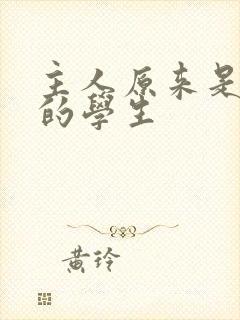 主人原来是
的學生
黃玲